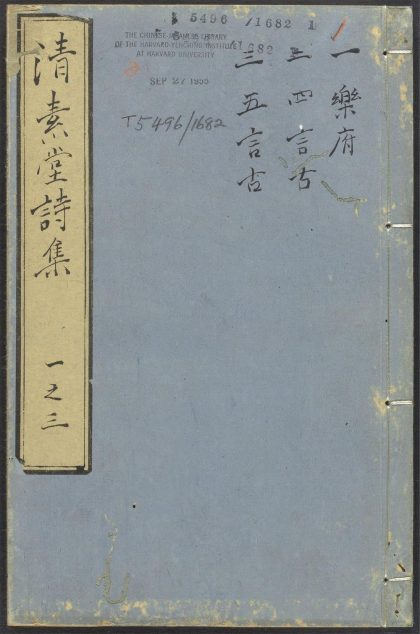 5496 /1682
THE CHINESE-JAPANESE LIBRARY
OF THE HARVARD-YENCHING INSTITUTE
AT HARVARD UNIVERSITY
SEP 27 1955
T5496/1682
一樂府
四言古
三五言古
清素堂詩集
一之三